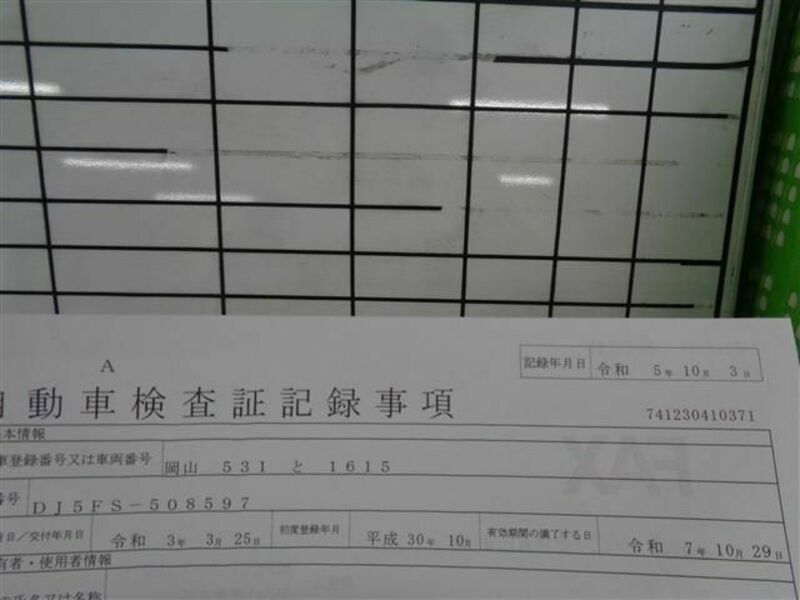 A
記録年月日 令和 5年 10月 3日
自動車検査証記録事項
741230410371
基本情報
車登録番号又は車両番号 岡山 531 と 1615
番号 DJ5FS-508597
月日/交付年月日 令和 3年 3月 25日 初度登録年月 平成 30年 10月 有効期間の満了する日 令和 7年 10月 29日
有者・使用者情報
の氏名又は名称
FAX